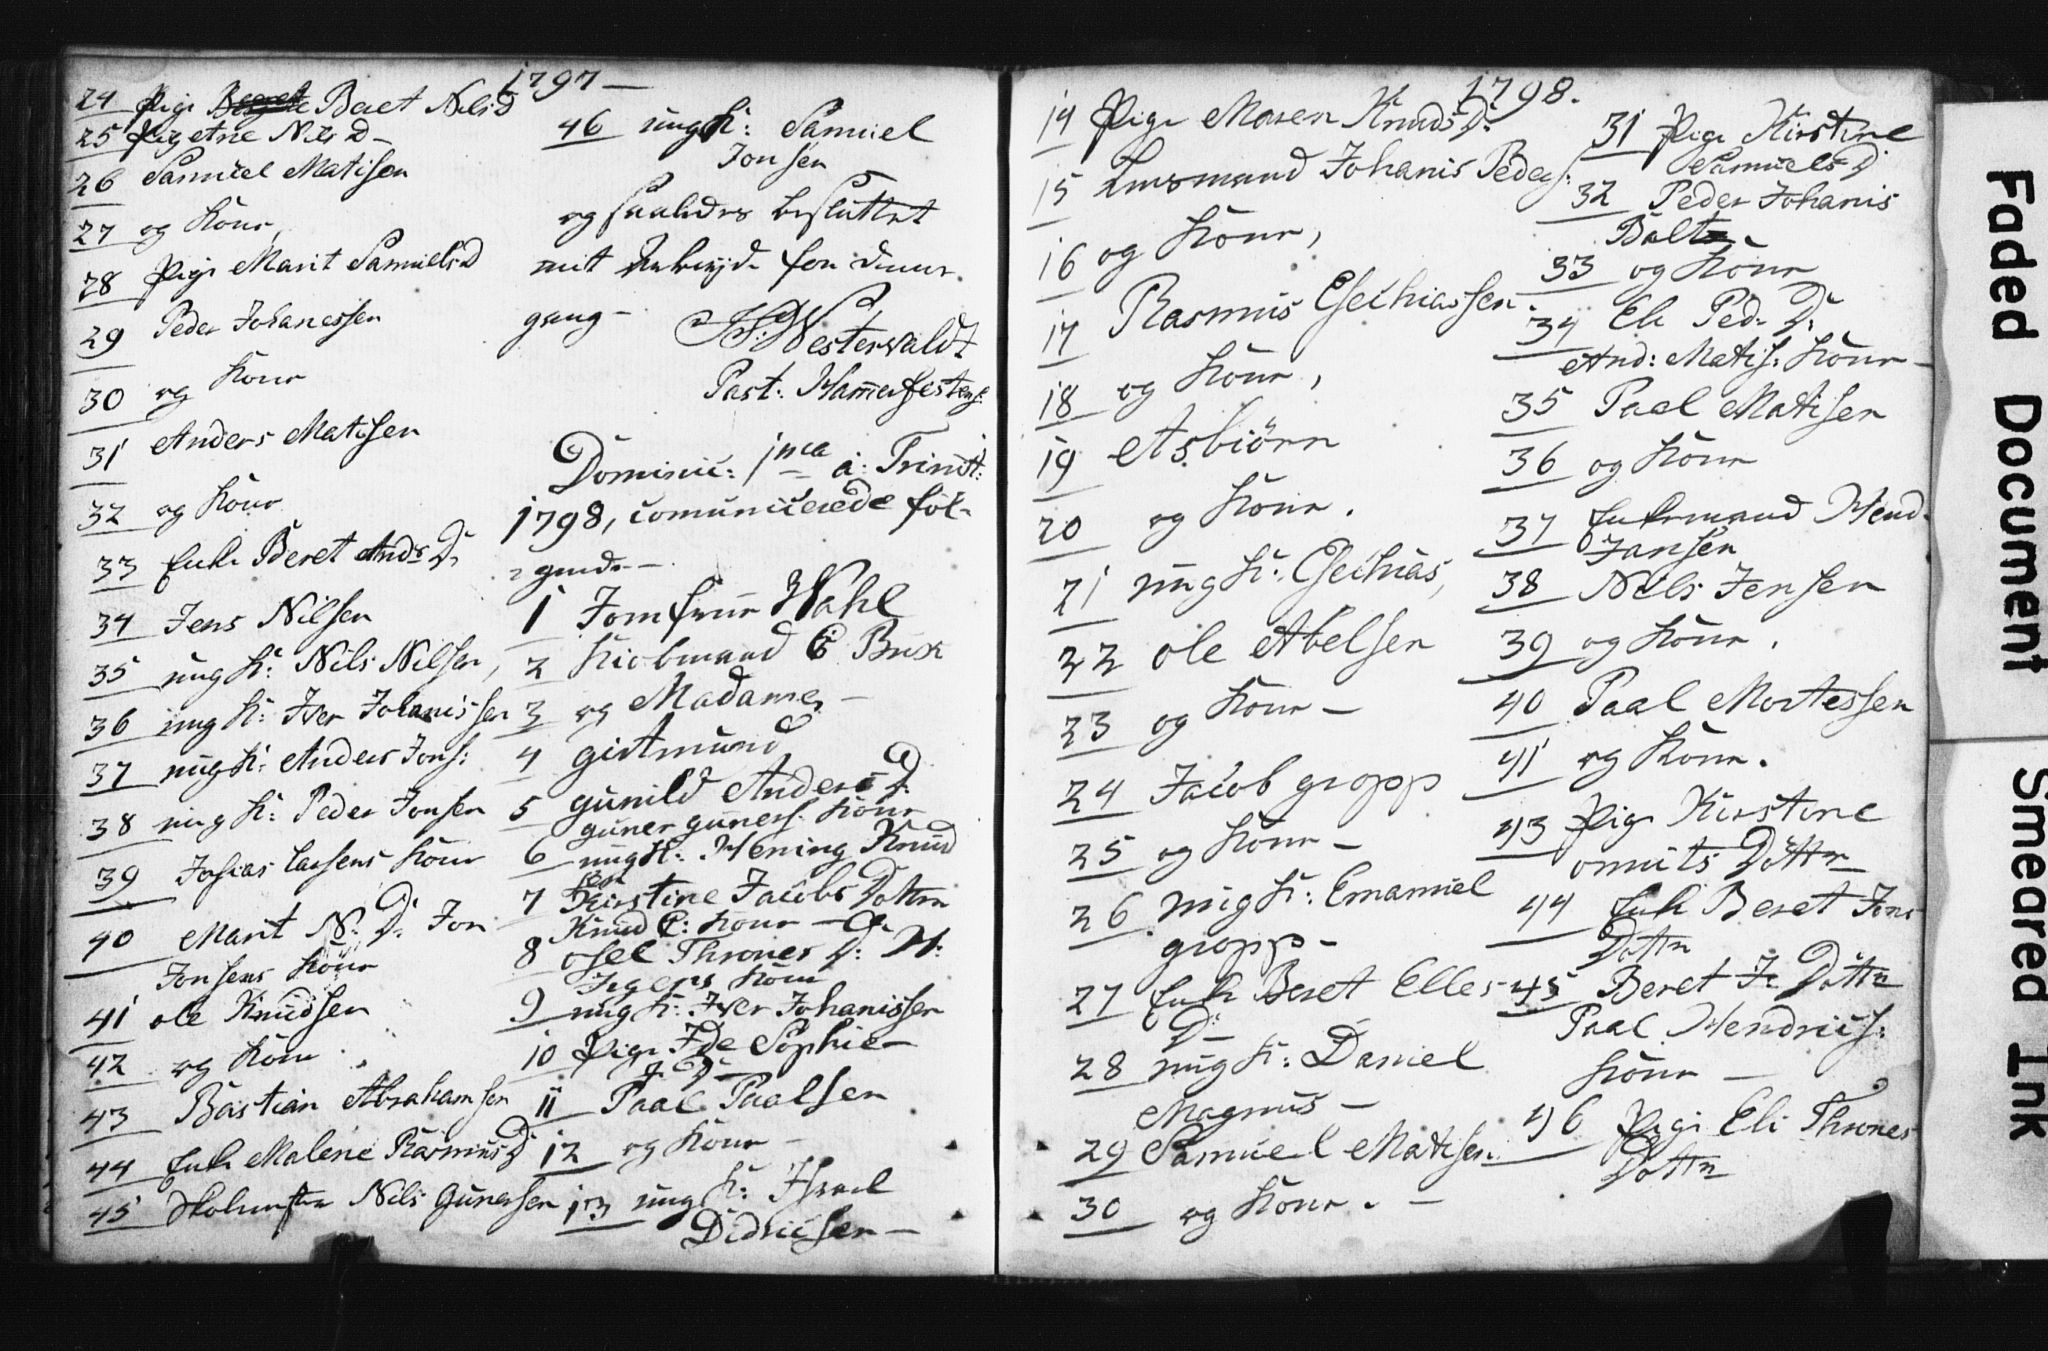 1797 —
24 Pige Beret Nilsd
25 Pig Ane Nilsd –
26 Samuel Matisen
27 og Kone,
28 Pige Marit SamuelsD
29 Peder Johanessen
30 og Kone
31 Anders Matisen
32 og Kone
33 Enke Beret AndsD.
34 Jens Nilsen
35 ung K: Nils Nilsen,
36 ung K: Iver Johanissen
37 ung K: Anders Jons:
38 ung K: Peder Jonsen
39 Josias Larsens Kone
40 Marit N: D: Jon
Jonsens Kone
41 Ole Knudsen
42 og Kone
43 Bastian Abrahamsen
44 Enke Malene RasmusD
45 Skolemester Nils Gunersen
46 ung K: Samuel
Jonsen
og saaledes besluttet
mit Arbeyde for denne
gang –
Westervaldt
Past: Hammerfestens:
Dominic: 1ma a: Trinit:
1798, comunicerede føl-
gende –
1 Jomfrue Wahl
2 Kiøbmand C Bux
3 og Madame –
4 Giertmund
5 Gunild Anders D.
Guner Guners. Kone
6 ung K: Hening Knud
sen
7 Kirstine Jacobs Dotter
Knud C: Kone –
8 Osel Thrones D: H:
Jegers Kone
9 ung K: Iver Johanissen
10 Pige Ide Sophie
J. D –
11 Paal Paalsen
12 og Kone –
13 ung K: Israel
Didricsen –
1798.
14 Pige Maren Knuds D:
15 Lensmand Johanis Peders:
16 og Kone,
17 Rasmus Esechiassen.
18 og Kone,
19 Asbiörn
20 og Kone.
21 ung K: Esechias,
22 Ole Abelsen
23 og Kone –
24 Jacob Gropp
25 og Kone –
26 ung K: Emanuel
Gropp –
27 Enke Beret Elles
D –
28 ung K: Daniel
Magnus –
29 Samuel Matisen.
30 og Kone. –
31 Pige Kirstine
SamuelsD
32 Peder Johanis
Balt
33 og Kone
34 Eli Ped: D:
And: Matis: Kone –
35 Pael Matisen
36 og Kone
37 Enkemand Hend.
Jansen
38 Nils Jensen
39 og Kone.
40 Paal Mortessen
41 og Kone.
43 Pige Kirstine
Omuits Dotter
44 Enke Beret Jons
Dotter
45 Beret J: Dotter
Paal Hendrics:
Kone –
46 Pige Eli Thrones
Dotter
Faded Document
Smeared Ink